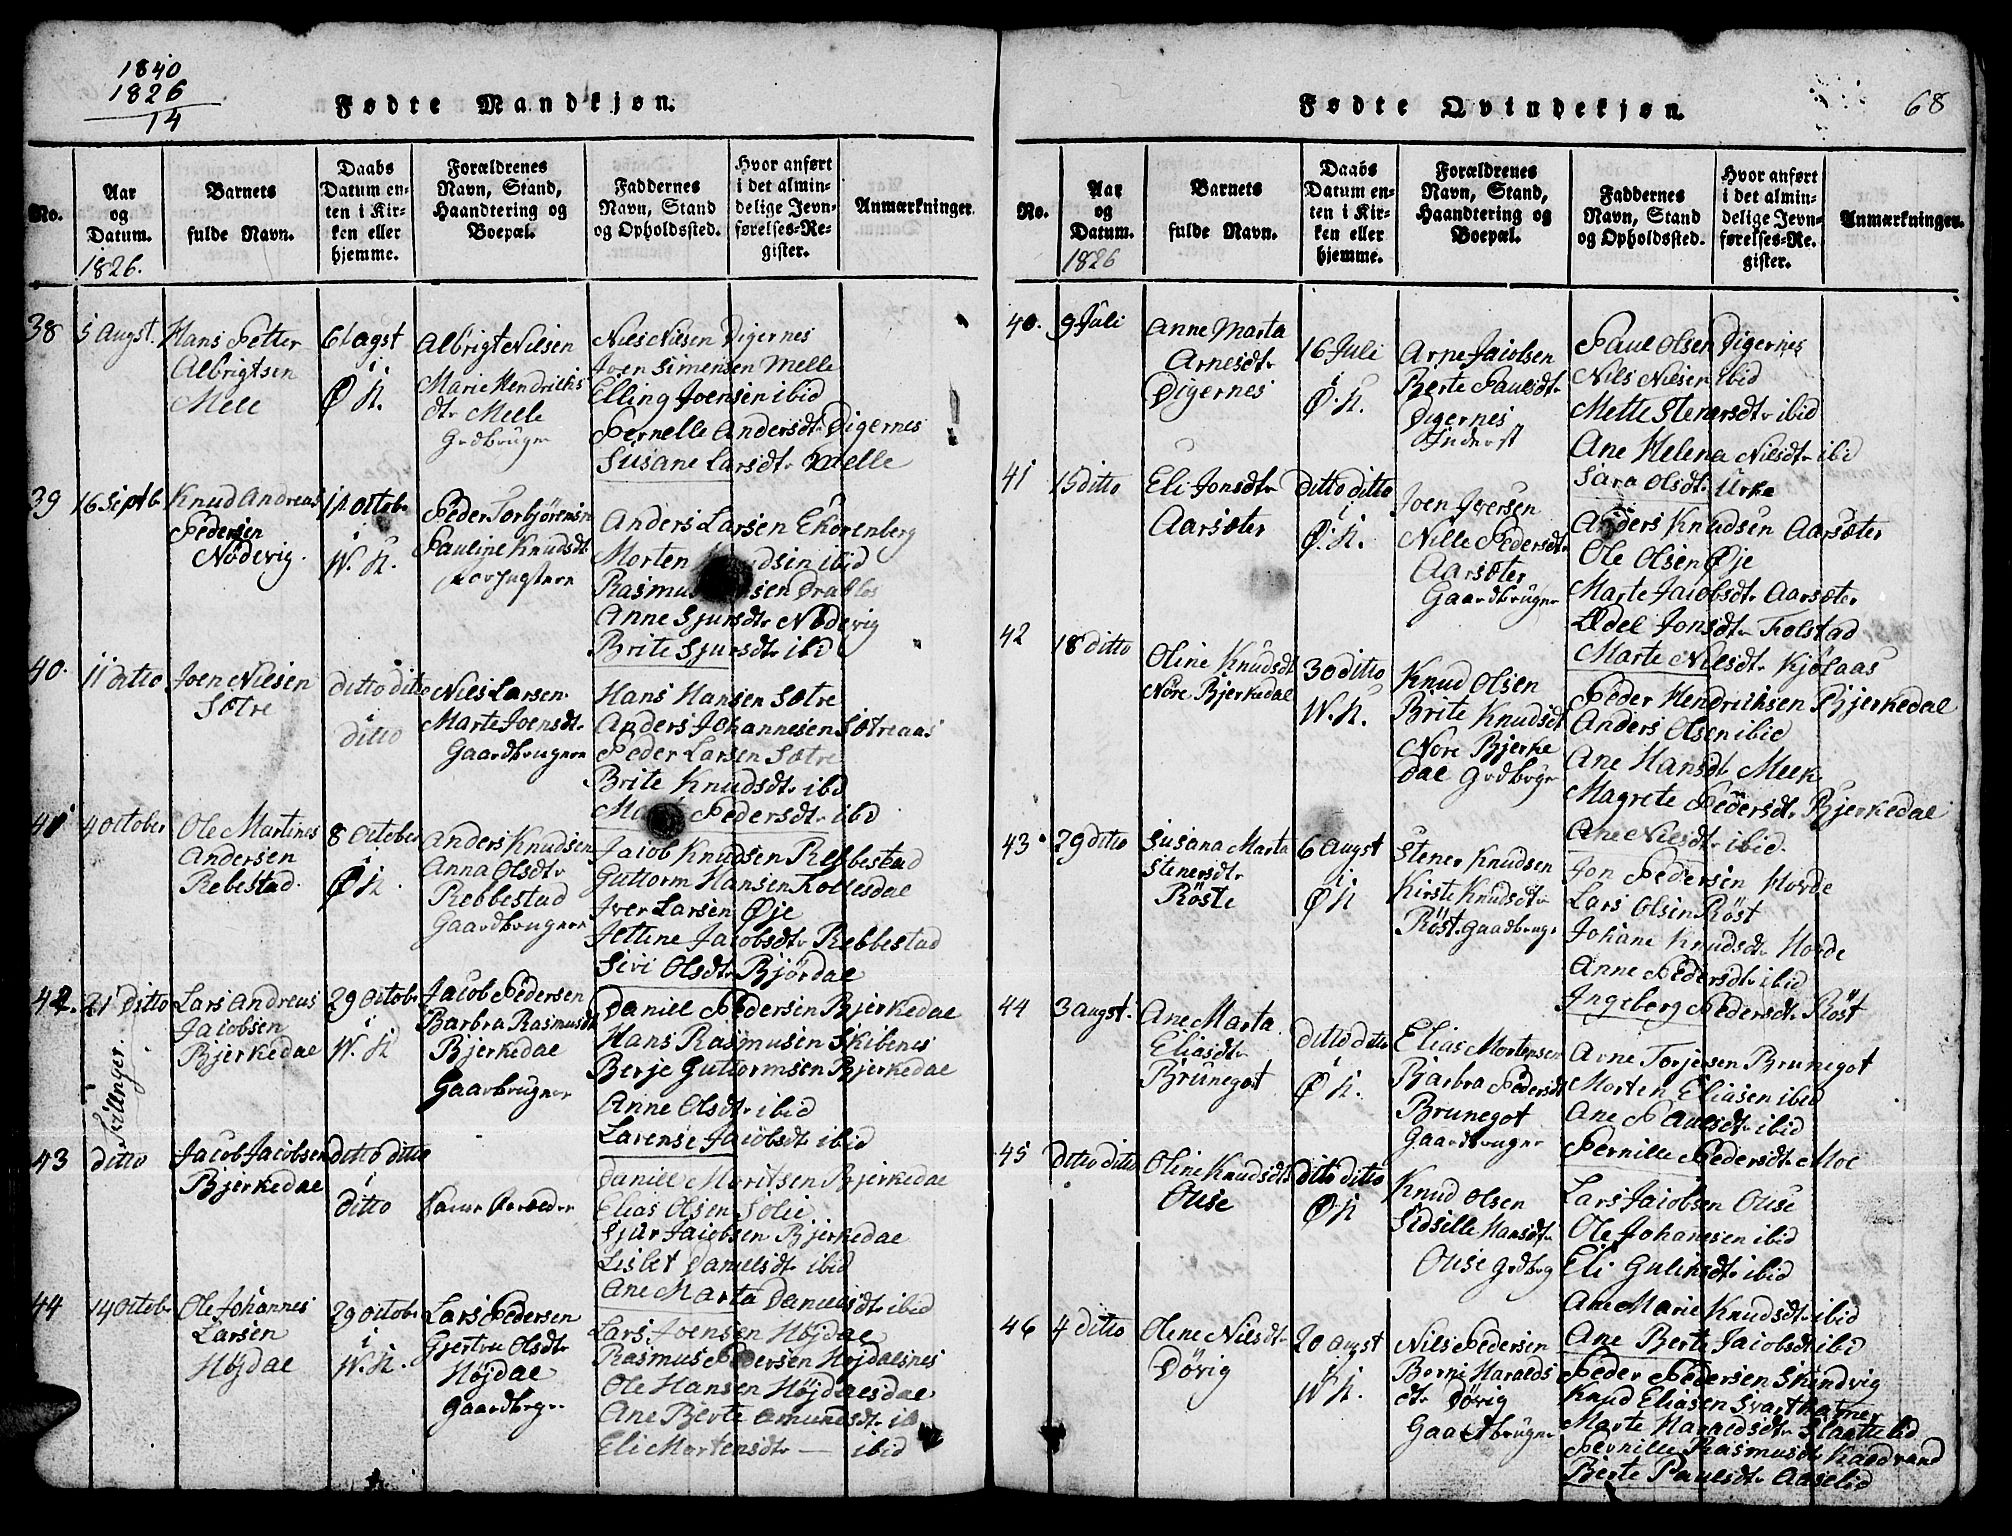 1840
1826
14
Fødte Mandkjøn.
No.
Aar
og
Datum.
1826.
Barnets
fulde Navn.
Daabs
Datum en-
ten i Kir-
ken eller
hjemme.
Forældrenes
Navn, Stand,
Haandtering og
Boepæl.
Faddernes
Navn, Stand
og Opholdssted.
Hvor anført
i det almin-
delige Jevn-
førelses-Re-
gister.
Anmærkninger.
38
5 Augst.
Hans Petter
Albrigtsen
Mele
6 Augst
i
Ø K.
Albrigt Nilsen
Marie Hendriks
dtr Melle
Grdbrugr
Niels Nilsen Digernes
Joen Simensen Melle
Elling Joensen ibid
Pernelle Andersdtr Digernes
Susane Larsdtr Melle
39
16 Septb
Knud Andreas
Pedersen
Nødevig.
1 Octobr
i
W. K.
Peder Torbjørensen
Pauline Knudsdt
Anders Larsen Ekorenberg
Morten Knudsen ibid
Rasmus Drabløs
Anne Sjursdtr Nødevig
Brite Sjursdtr ibd
40.
11 ditto
Joen Nilsen
Sætre
ditto ditto
i
ditto
Niels Larsen
Marte Joensdtr
Gaardbrugern
Hans Hansen Sætre
Anders Johannesen Sætreaas
Peder Larsen Sætre
Brite Knudsdtr ibd
Pedersdtr ibd
41
4 October
Ole Martines
Andersen
Rebestad.
8 October
i
Ø K.
Anders Knudsen
Anna Olsdtr
Rebbestad
Gaardbrugern
Jacob Knudsen Rebbestad
Guttorm Hansen Kollesdal
Iver Larsen Øje
Jettine Jacobsdtr Rebbestad
Sivi Olsdtr Björdal
42.
21 Ditto
Tvillinger.
Lars Andreas
Jacobsen
Bjerkedal
29 Octobr
i
W. K
Jacob Pedersen
Barbra Rasmusdt
Bjerkedal
Gaarbrugner
Daniel Pedersen Bjerkedal
Hans Rasmusen Skibenes
Berje Guttormsen Bjerkedal
Anne Olsdtr ibid
Larense Jacobsdtr ibid
43
ditto
Jacob Jacobsen
Bjerkedal
Ditto ditto
i
ditto
Samme Forælder
Daniel Moritsen Bjerkedal
Elias Olsen Solie
Sjur Jacobsen Bjerkedal
Lislet Danielsdtr ibid
Ane Marta Danielsdtr ibid
44
14 Octobr
Ole Johannes
Larsen
Højdal
29 Octobr
i
W. K.
Lars Pedersen
Gjertru Olsdtr
Højdal
Gaardbrgr
Lars Joensen Højdal
Rasmus Pedersen Højdalsnes
Ole Hansen Højdalsdal
Ane Berte Amundsdtr ib
Eli Mortensdtr — ibid
68
Fødte Qvindekjøn.
No.
Aar
og
Datum.
1826
Barnets
fulde Navn.
Daabs
Datum en-
ten i Kir-
ken eller
hjemme.
Forældrenes
Navn, Stand,
Haandtering og
Boepæl.
Faddernes
Navn, Stand
og Opholdssted.
Hvor anført
i det almin-
delige Jevn-
førelses-Re-
gister.
Anmærkninger.
40.
9 Juli
Anne Marta
Arnesdtr
Digernes
16 Juli
i
Ø. K.
Arne Jacobsen
Berte Paulsdtr
Digernes
Inderst
Paul Olsen Digernes
Nils Nilsen ibid
Mette Stenersdtr ibid
Ane Helena Nilsdtr ibd
Sara Olsdtr Urke
41
15 ditto
Eli Jonsdtr
Aarsæter
ditto ditto
i
Ø. K.
Joen Iversen
Nille Pedersdtr
Aarsæter
Gaardbrugnr
Anders Knudsen Aarsæter
Ole Olsen Øje
Marte Jacobsdtr Aarsæter
Ædel Jonsdtr Folstad
Marte Nilsdtr Kjölaas
42
18 ditto
Oline Knudsdt
Nore Bjerkedal
30 ditto
i
W. K.
Knud Olsen
Brite Knudsdt
Nore Bjerke
dal Grdbrgr
Peder Hendriksen Bjerkedal
Anders Olsen ibid
Ane Hansdt Meek
Magrete Pedersdtr Bjerkedal
Ane Nilsdtr ibid
43.
29 ditto
Susana Marta
Stenersdtr
Röste
6 Augst
i
Ø K
Stener Knudsen
Kirste Knudsdtr
Röst Gaadbrugr
Jon Pedersen Hovde
Lars Olsen Röst
Johane Knudsdtr Hovde
Anne Pedersdtr ibid
Ingeberg Pedersdtr Röst
44
3 Augst.
Ane Marta
Eliasdtr
Brunegot
ditto ditto
i
Ø K.
Elias Mortensen
Barbra Pedersdt
Brunegot
Gaardbrugnr
Arne Torjesen Brunegot
Morten Eliasen ibid
Ane Paulsdtr ibid
Pernille Pedersdtr Moe
45
Ditto ditto
Oline Knudsdtr
Ouse
ditto ditto
i
Ø K
Knud Olsen
Sidsille Hansdtr
Ouse Grdbrg
Lars Jacobsen Ouse
Ole Johansen ibid
Eli Gulliksdtr ibid
Ane Marie Knudsdtr ibid
Ane Berte Jacobsdt ibid
46
4 ditto
Olene Nilsdtr
Dövig
20 Augst
i
W K.
Nils Pedersen
Berni Haralds
dtr Dövig
Gaardbrugnr
Peder Pedersen Skindvig
Knud Eliasen Svartholmer
Marte Haraldsdtr Slaattelid
Pernille Rasmusdt Kaldvand
Berte Paulsdtr Aaselid